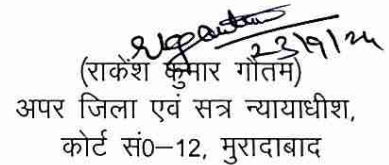 23/9/24
(राकेश कुमार गौतम)
अपर जिला एवं सत्र न्यायाधीश,
कोर्ट सं0–12, मुरादाबाद